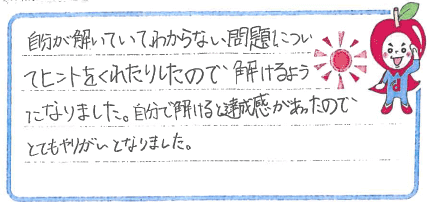 自分が解いていてわからない問題につい
てヒントをくれたりしたので解けるよう
になりました。自分で解けると達成感があったので
とてもやりがいとなりました。